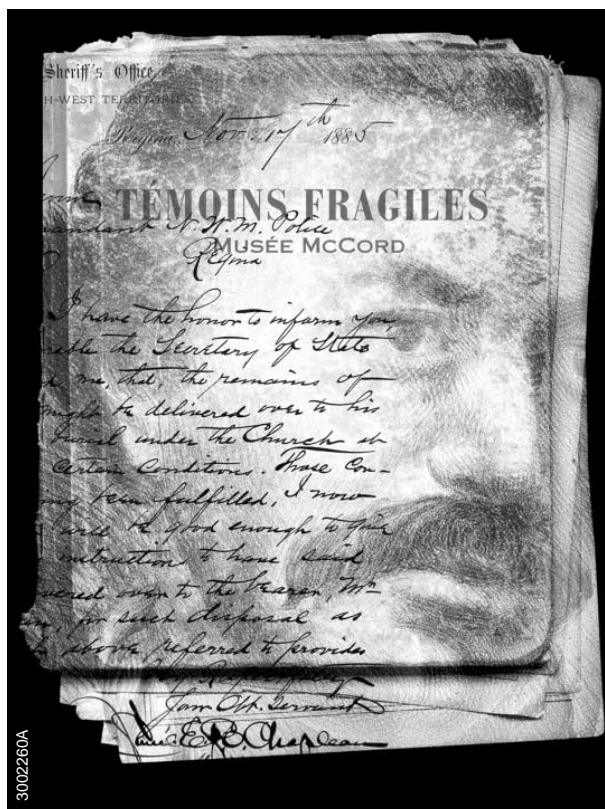 Sheriff's Office
H-WEST TERRITORIES
Regina, Nov. 17th 1885
TÉMOINS FRAGILES
andant N. W. M. Police
MUSÉE MCCORD
Regina
I have the honor to inform you,
the Secretary of State
me, that, the remains of
might be delivered over to his
burial under the Church at
certain conditions. Those Con-
been fulfilled, I now
will be good enough to give
instruction to have said
over to the bearer, Mr
such disposal as
above referred to provides
Your Obt. Servant
E. Chapleau
3002260A